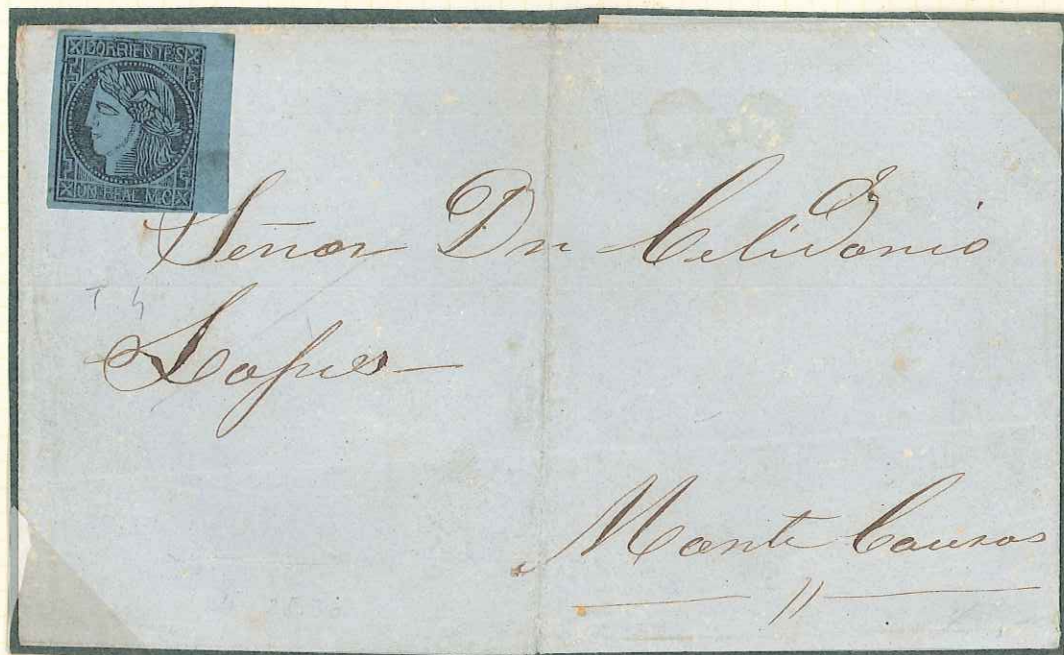 CORRIENTES
UN REAL M.C.
Señor Dn Celidonio
T 4
Lopes
Monte Caseros